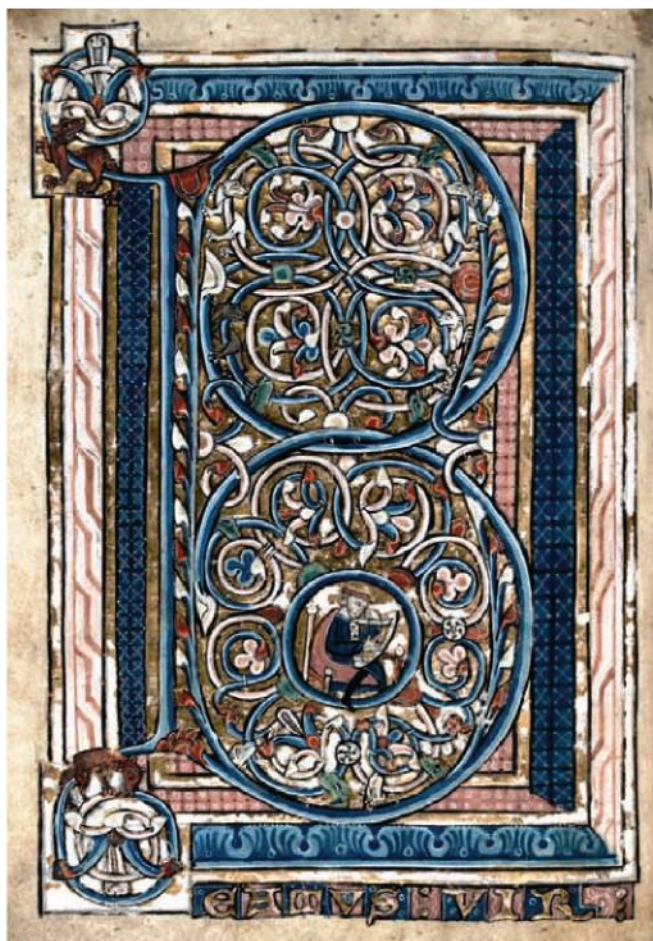 B
EATVS : VIR :